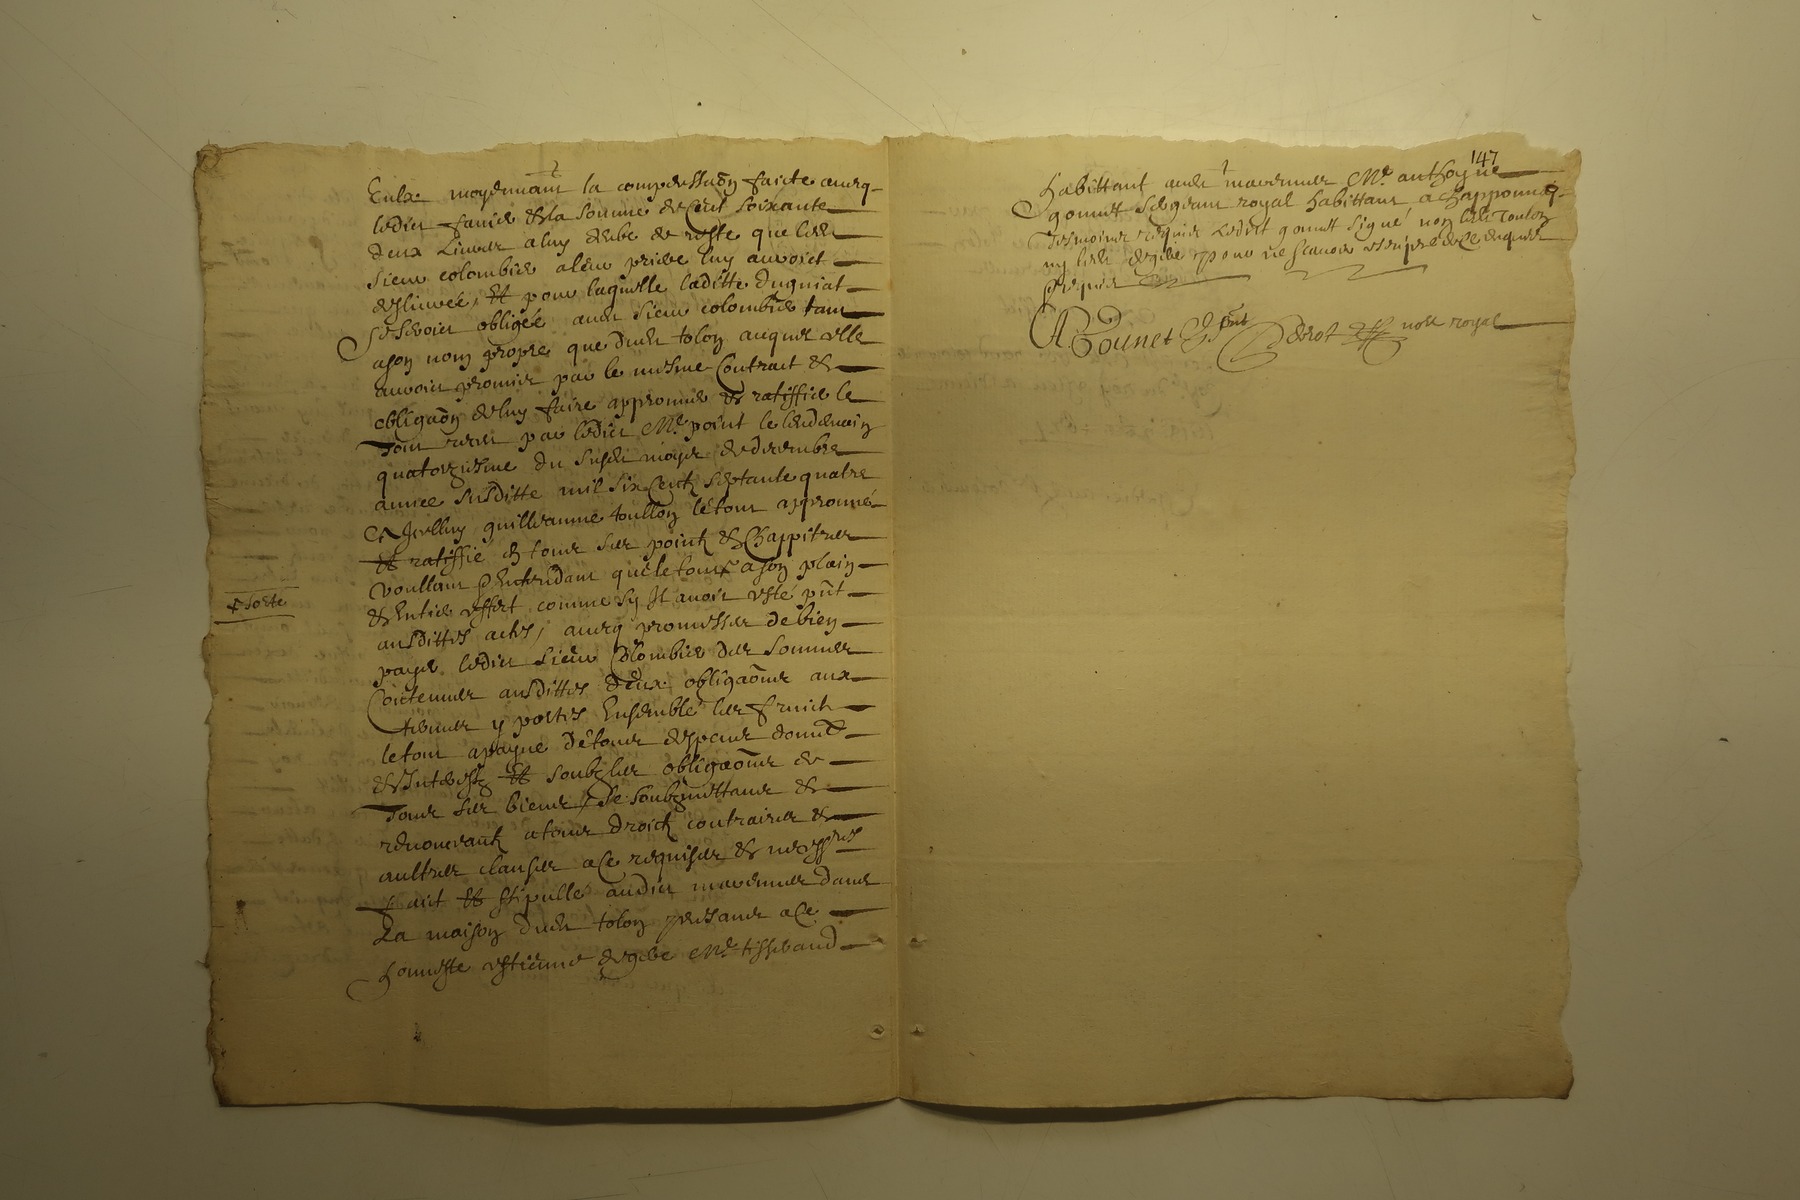 Eulx moyennant la compensaōn faicte avecq
ledict favier de la somme de Cent soixante
deux Livres a luy deube de reste que ledit
sieur colombier a leur priere luy auvoict
deslivree, et pour laquelle laditte duguiat
se seroict obligée audit sieur colombier tant
a son nom propre que dudit tolon auquel elle
auvoit promis par le mesme Contract de
obligaōn de luy faire approuver et ratiffier le
Tout receu par ledict Me point le lendemain
quatorziesme du susdit moys de decembre
annee susditte mil six Centz septante quatre
Et Icelluy guilleaume toullon le tout approuvé
et ratiffié en tous ses pointz et Chappitres
voullant Entendant que le tout + a son plain
et Entier effect comme sy Il avoit esté pnt
ausdittes actes, avecq promesses de bien
payer ledict sieur Colombier des sommes
Contenues ausdittes deux obligaōns aux
termes y portés Ensemble les fruictz
le tout a payne de tous despens domes
et Interestz et soubz les obligaōns de
Tous ses biens, se soubzmettans et
renonceantz a tous droictz contraires et
aultres clauses a ce requises et necessres
faict et stipullé audict mavennes dans
La maison dudit tolon presans a ce
honneste estienne degebe Me tisserand
+ sorte
147
habittant audit mavennes Me anthoyne
gonnet sergeant royal habittant a Chapponnay
Tesmoins requis Ledict gonnet signé non ledt Toulon
ny ledit degebe pour ne sçavoir escripre de ce enquis
et requis
A Gounet pnt
Perrot nore royal